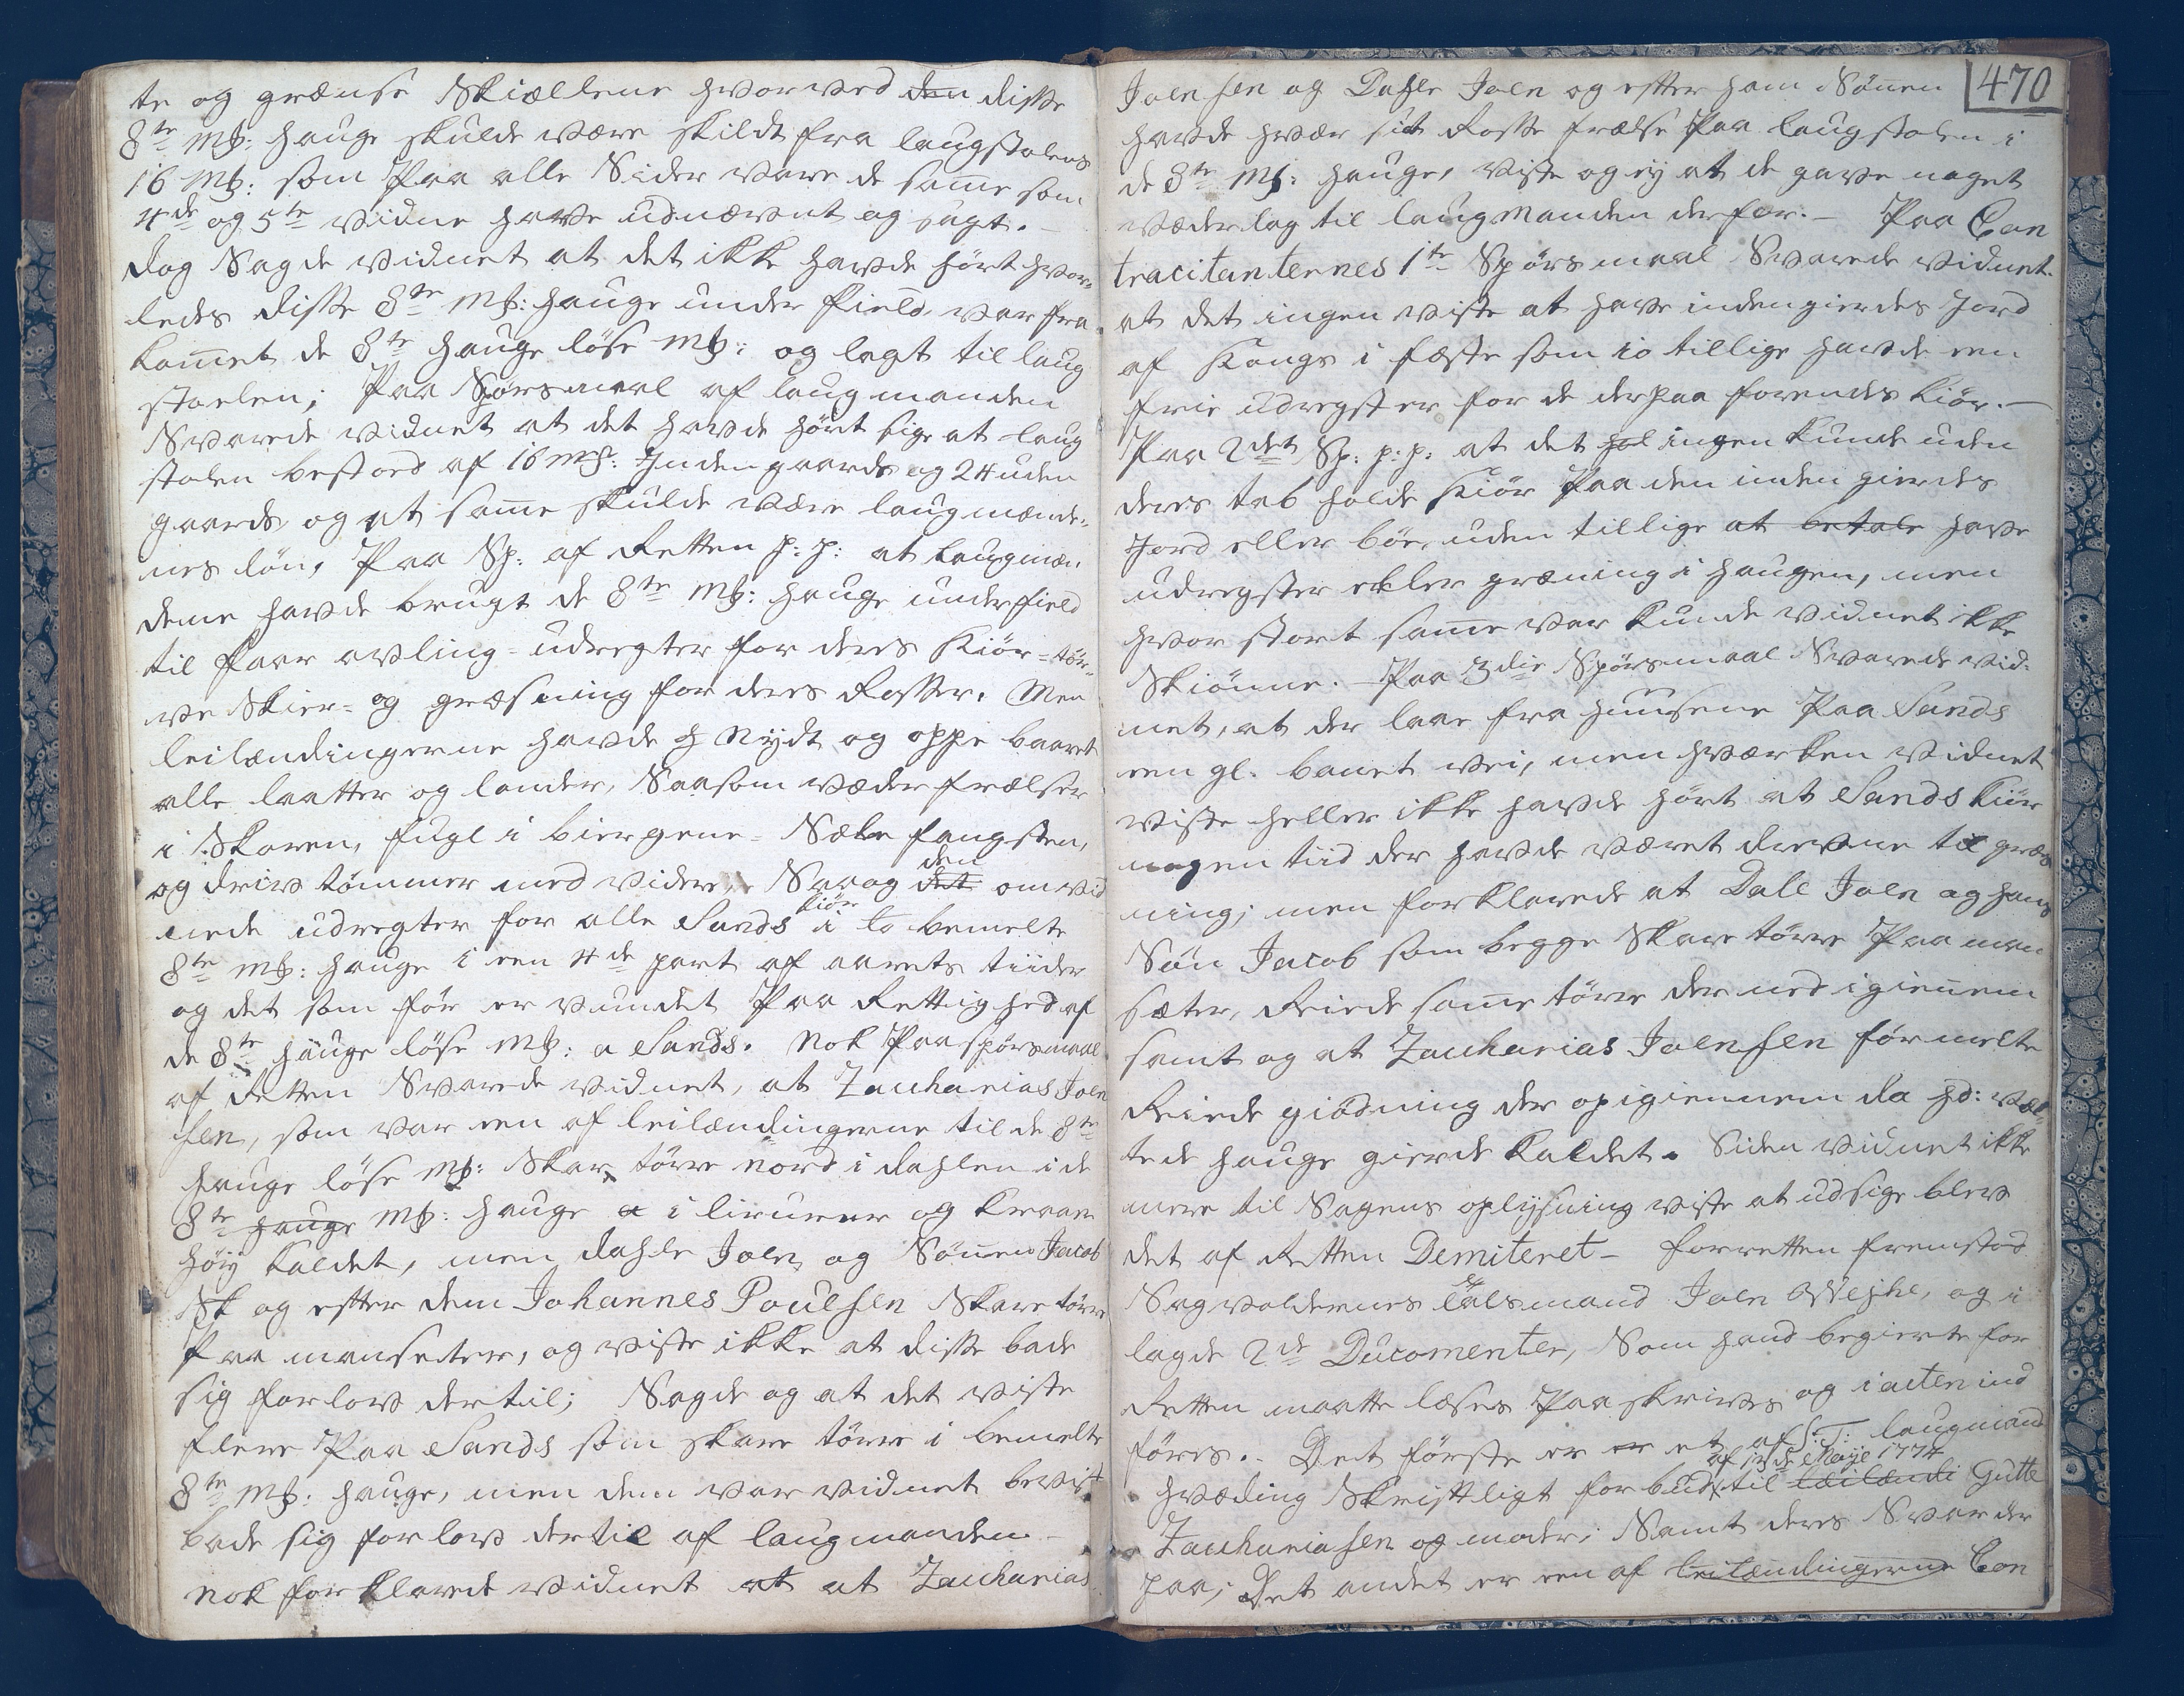 te og grænse Skiællene hvorved den disse
8te mk: hauge skulde være skildt fra laugstolens
16 mk: som Paa alle Sider vare de samme som
4de og 5te vidne have udnævnt og sagt. –
dog Sagde vidnet at det ikke havde hört hvor-
ledes disse 8te mk: hauge under field, var fra
kommet de 8te hauge löse mk: og lagt til laug
stoelen; Paa Spörsmaal af laugmanden
Svarede vidnet at det havde hört sige at laug
stolen bestoed af 16 mk: Inden gaards og 24 uden
gaards, og at samme skulde være laugmænde-
nes lön, Paa Sp: af Retten p: p: at Laugmæn
dene havde brugt de 8te mk: hauge under field
til Faar avling- udregter for deres Kiör- tör-
ve Skier- og græsning for deres Rosser. Men
leilændingerne havde h nydt og oppe baaret
alle laatter og lander, Saasom væder frælser
i Skoren, fugl i biergene- Sæle fangsten,
og driv tömmer med videre, Saaog det den omvid
nede udregter for alle Sands kiör i to bemelte
8te mk: hauge i een 4de part af aarets tiider
og det som för er vundet Paa Rettighed af
de 8te hauge löse mk: a Sands. Nok Paa spörsmaal
af Retten Svarede vidnet, at Zacharias Joen
sen, som var een af leilændingerne til de 8te
hauge löse mk: Skar törve nord i dahlen i de
8te hauge mk: hauge a i lirurer og kraan
höy kaldet, men dahle Joen og Sönnen Jacob
Sk og efter dem Johannes Poulsen Skare törve
Paa mansæter, og viste ikke at disse bade
sig forlov dertil; Sagde og at det viste
flere Paa Sands som skare törve i bemelte
8te mk: hauge, men dem var vidnet bevist
bade sig forlov dertil af laugmanden –
nok forklarede vidnet at at Zacharias
470
Joensen og Dahle Joen og efter ham Sönnen
havde hvær sit Rosse frælse Paa laugstolen i
de 8te mk: hauge, viste og ey at de gave noget
væderlag til laugmanden derfor. – Paa Con
tracitanternes 1te Spörsmaal Svarede vidnet
at det ingen viste at have indengierdes Jord
af Kongs i fæste som io tillige havde een
frie udregster for de derpaa forendes kiör. –
Paa 2det Sp: p: p: at det hol ingen kunde uden
deres tab holde Kiör Paa den inden gierdes
Jord eller böe, uden tillige at betale have
udregster eller græsning i haugen, men
hvor stort samme var kunde vidnet ikke
Skiönne. – Paa 3die Spörsmaal Svarede vid-
net, at der laae fra huusene Paa Sands
een gl. banet vei, men hværken vidnet
viste heller ikke havde hört at Sands kiör
nogen tiid der havde været drevne til græs
ning; men forklarede at Dale Joen og hans
Sön Jacob som begge Skare törve Paa man
sæter, Reiede samme törve der ned igiennem
samt og at Zacharias Joensen formelte
Reiede giödning der op igiennem da hd: væl
tede hauge gierde kaldet. Siden vidnet ikke
mere til Sagens oplysning viste at udsige blev
det af Retten Demiteret – for retten fremstod
Sagvoldernes lalsmand Joen Wejhe, og i
lagde 2de Ducomenter, Som hand begierte for
Retten maatte læses Paaskrives og i acten ind
föres. Det förste er er et af S: T: laugmand
hvæding Skrifftligt forbud af 13de Maije 1774 til læilændi Gutte
Zachariasen og moder; Samt deres Svar der
paa; Det andet er een af leilændingerne Con